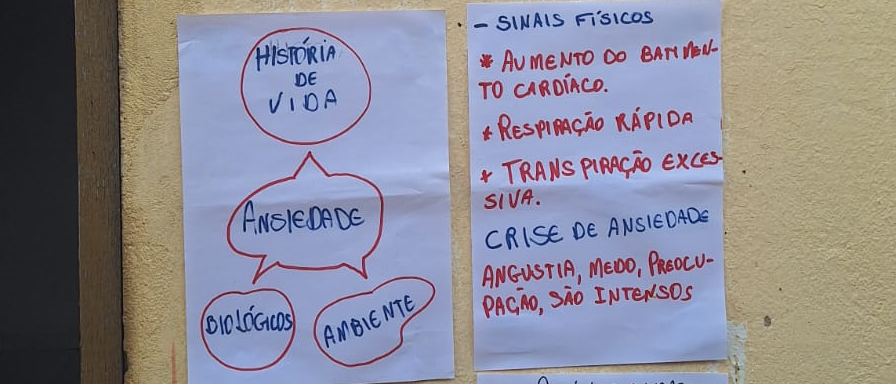 HISTÓRIA
DE
VIDA
ANSIEDADE
BIOLÓGICOS
AMBIENTE
- SINAIS FÍSICOS
* AUMENTO DO BATIMEN-
TO CARDÍACO.
* RESPIRAÇÃO RÁPIDA
* TRANSPIRAÇÃO EXCES-
SIVA.
CRISE DE ANSIEDADE
ANGUSTIA, MEDO, PREOCU-
PAÇÃO, SÃO INTENSOS